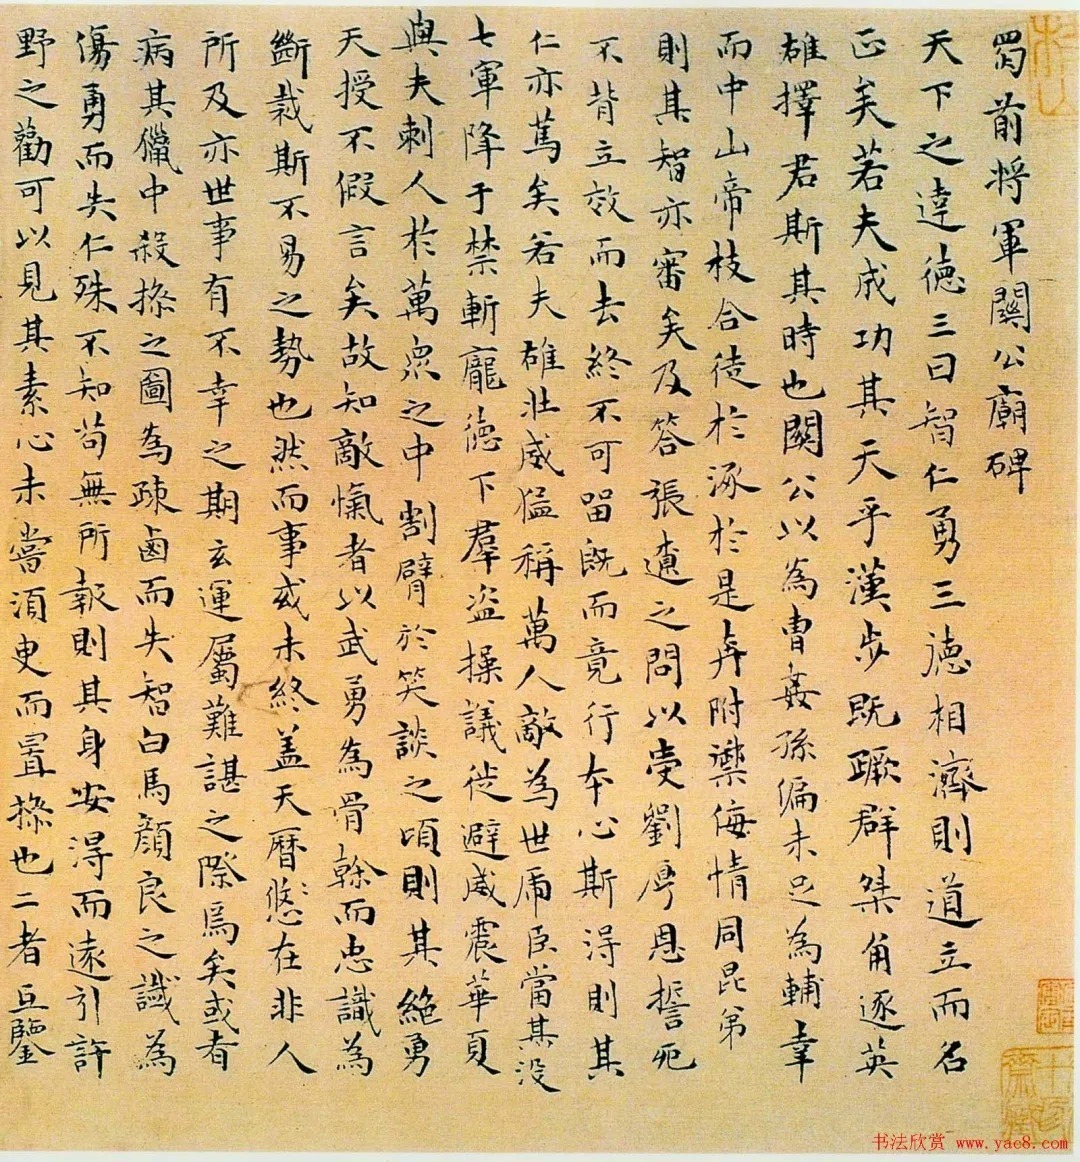 蜀前将軍關公廟碑
天下之達徳三曰智仁勇三徳相濟則道立而名
正矣若夫成功其天乎漢步既蹶群桀角逐英
雄擇君斯其時也關公以為曹姦孫偏未足為輔幸
而中山帝枝合徒於涿於是奔附禦侮情同昆弟
則其智亦審矣及答張遼之問以受劉厚恩誓死
不背立效而去終不可留既而竟行本心斯得則其
仁亦篤矣若夫雄壯威猛稱萬人敵為世虎臣當其没
七軍降于禁斬龐徳下羣盜操議徙避威震華夏
與夫刺人於萬衆之中割臂於笑談之頃則其絶勇
天授不假言矣故知敵愾者以武勇為骨榦而忠識為
斷裁斯不易之勢也然而事或未終盖天曆悠悠在非人
所及亦世事有不幸之期玄運屬難諶之際焉矣或者
病其獵中殺操之圖為踈鹵而失智白馬顔良之諴為
傷勇而失仁殊不知苟無所報則其身安得而遠引許
野之勸可以見其素心未嘗須臾而置操也二者互鑒
书法欣赏 www.yac8.com